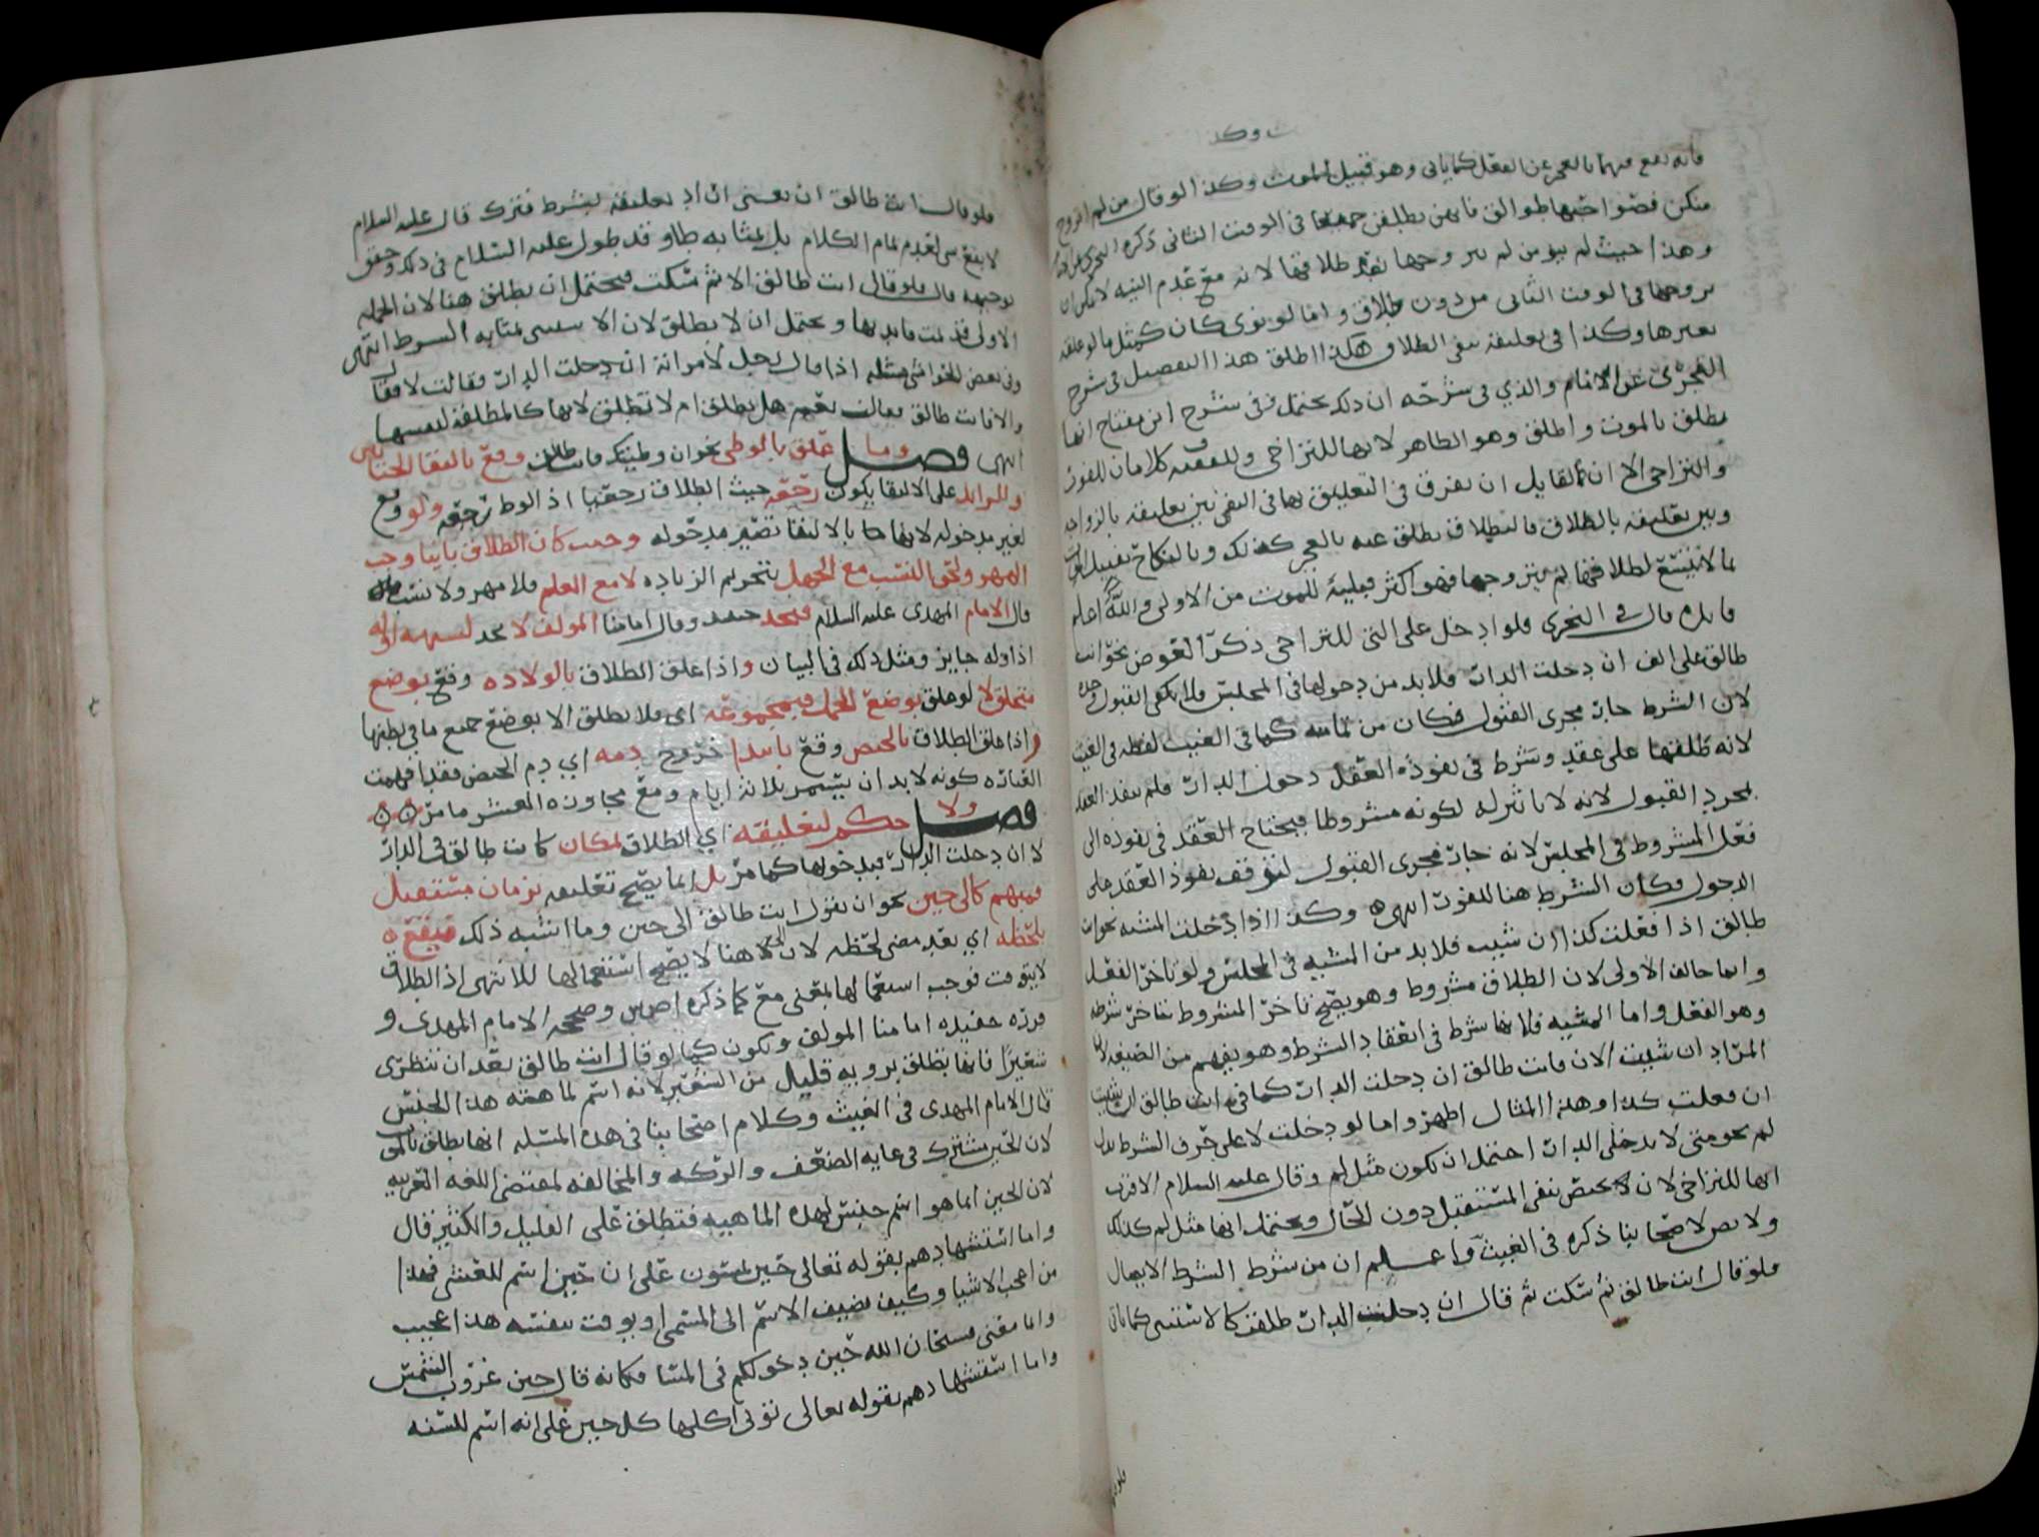 ت وكذ
فانه يقع فيهما بالعجز عن الفعل كما ياتي وهو قبيل الموت وكذا لو قال من لم اتزوج
منكن فصواحبها طوالق فانهن يطلقن جميعا في الوقت الثاني ذكره
وهذا حيث لم ينو من لم يتزوجها بعد طلاقها لانه مع عدم النيه لا يمكن ان
يتزوجها في الوقت الثاني من دون طلاق واما لو نوى كان كمثل ما لو علقه
بغيرها وكذا في تعليقه بنفي الطلاق هكذا اطلق هذا التفصيل في شرح
النجري عن الامام والذي في شرحه ان ذلك يحتمل وفي شرح ابن مفتاح انها
تطلق بالموت واطلق وهو الظاهر لانها للتراخي وللفقيه ف كلامان للفور
والتراخي الا ان لقايل ان يفرق في التعليق بها في النفي بين تعليقه بالزواجه
وبين تعليقه بالطلاق فالطلاق يطلق عنه بالعجز كذلك وبالنكاح بقبيل الموت
بما لا يتسع لطلاقها ثم يتزوجها فهو اكثر قبليه للموت من الاولى والله اعلم
فايده قال في النجري فلو ادخل على التي للتراخي ذكر العوض نحو انت
طالق على الف ان دخلت الدار فلا بد من دخولها في المجلس ولا يكفي القبول وحده
لان الشرط جار مجرى القبول فكان من تمامه كما في الغيث لفظه في الغيث
لانه طلقها على عقد وشرط في نفوذه العقد دخول الدار فلم ينفذ العقد
بمجرد القبول لانه لا تاثير له لكونه مشروطا فيحتاج العقد في نفوذه الى
فعل المشروط في المجلس لانه جار مجرى القبول لتوقف نفوذ العقد على
الدخول فكان الشرط هنا للفور انتهى وكذا اذا دخلت المشيه نحو انت
طالق اذا فعلت كذا ان شيت فلا بد من المشيه في المجلس ولو تاخر الفعل
وانما خالف الاولى لان الطلاق مشروط وهو يصح تاخر المشروط بتاخر شرطه
وهو الفعل واما المشيه فلانها شرط في انعقاد الشرط وهو يفهم من الصيغه لان
المراد ان شيت الان فانت طالق ان دخلت الدار كما في انت طالق ان شيت
ان فعلت كذا وهذا المثال اظهر واما لو دخلت لا على حرف الشرط بدل
لم نحو متى لا تدخلي الدار احتمل ان تكون مثل لم وقال عليه السلام الاقرب
انها للتراخي لان لا تختص بنفي المستقبل دون الحال ويحتمل انها مثل لم كذلك
ولا نص لاصحابنا ذكره في الغيث واعلم ان من شرط الشرط الاتصال
فلو قال انت طالق ثم سكت ثم قال ان دخلت الدار طلقت كالاستثنى كما ياتي
فلو قال انت طالق ان يعني ان اراد تعليقه بشرط فترك قال عليه السلام
لا يقع شي لعدم تمام الكلام بل بمثابه طا وقد طول عليه السلام في ذلك وحقق
توجيهه قال فلو قال انت طالق الا ثم سكت فيحتمل ان تطلق هنا لان الجمله
الاولى قد تمت فايدتها ويحتمل ان لا تطلق لان الاستثنى بمثابه الشرط انتهى
وفي بعض الحواشي مسله اذا قال رجل لامراته ان دخلت الدار فقالت لا فقال
والا فانت طالق فقالت نعم هل تطلق ام لا تطلق لانها كالمطلقه لنفسها
انتهى فصل وما علق بالوطي نحو ان وطيتك فانت طالق وقع بالتقا الختانين
والزايد على الالتقا يكون رجعه حيث الطلاق رجعيا اذ الوطي رجعه ولو وقع
لغير مدخوله لانها هنا بالالتقا تصير مدخوله وحيث كان الطلاق باينا وجب
المهر ولحق النسب مع الجهل بتحريم الزياده لا مع العلم فلا مهر ولا نسب
قال الامام المهدي عليه السلام فيحد حينئذ وقال امامنا المولف لا يحد لشبهه اذ
اذا وله جايز ومثل ذلك في البيان واذا علق الطلاق بالولاده وقع بوضع
متخلق لا لو علق بوضع الحمل فبمجموعه اي فلا يطلق الا بوضع جميع ما في بطنها
واذا علق الطلاق بالحيض وقع بابتدا خروج دمه اي دم الحيض فقد افهمت
العباره كونه لا بد ان يستمر ثلاثه ايام ومع مجاوزه العشر ما مر
فصل ولا حكم لتعليقه اي الطلاق بمكان كانت طالق في الدار
لا ان دخلت الدار فبدخولها كما مر بل انما يصح تعليقه بزمان مستقبل
فمبهم كالى حين نحو ان يقول انت طالق الى حين وما اشبه ذلك فيقع
بلحظه اي بعد مضي لحظه لان الى هنا لا يصح استعمالها للانتهى اذ الطلاق
لا يتوقت فوجب استعمالها بمعنى مع كما ذكره اص ش وصححه الامام المهدي و
قرره حفيده امامنا المولف وتكون كما لو قال انت طالق بعد ان تنظري
شعيرا فانها تطلق برويه قليل من الشعير لانه اسم لماهيه هذا الجنس
قال الامام المهدي في الغيث وكلام اصحابنا في هذه المسله انها تطلق بالموت
لان الحين مشترك في غايه الضعف والركه والمخالفه لمقتضى اللغه العربيه
لان الحين انما هو اسم جنس لهذه الماهيه فتطلق على القليل والكثير قال
واما استشهادهم بقوله تعالى حين تمسون على ان حين اسم للعشي فهذا
من اعجب الاشيا وكيف يضيف الاسم الى المسمى او يوقت بنفسه هذا عجيب
وانما معنى فسبحان الله حين دخولكم في المسا فكانه قال حين غروب الشمس
واما استشهادهم بقوله تعالى توتي اكلها كل حين على انه اسم للسنه